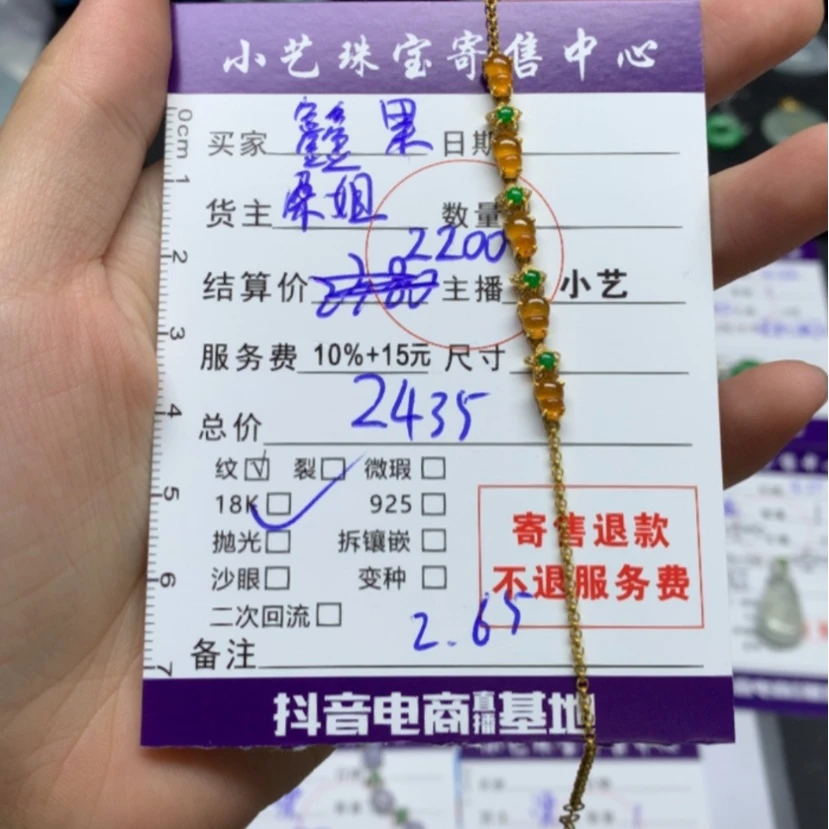 小艺珠宝寄售中心
0cm 1 2 3 4 5 6 7
买家 果 日期
货主 桑姐 数量
2200
结算价 主播 小艺
服务费 10%+15元 尺寸
总价 2435
纹 裂 微瑕
18K 925
抛光 拆镶嵌
沙眼 变种
二次回流
寄售退款
不退服务费
备注 2.65
抖音电商直播基地